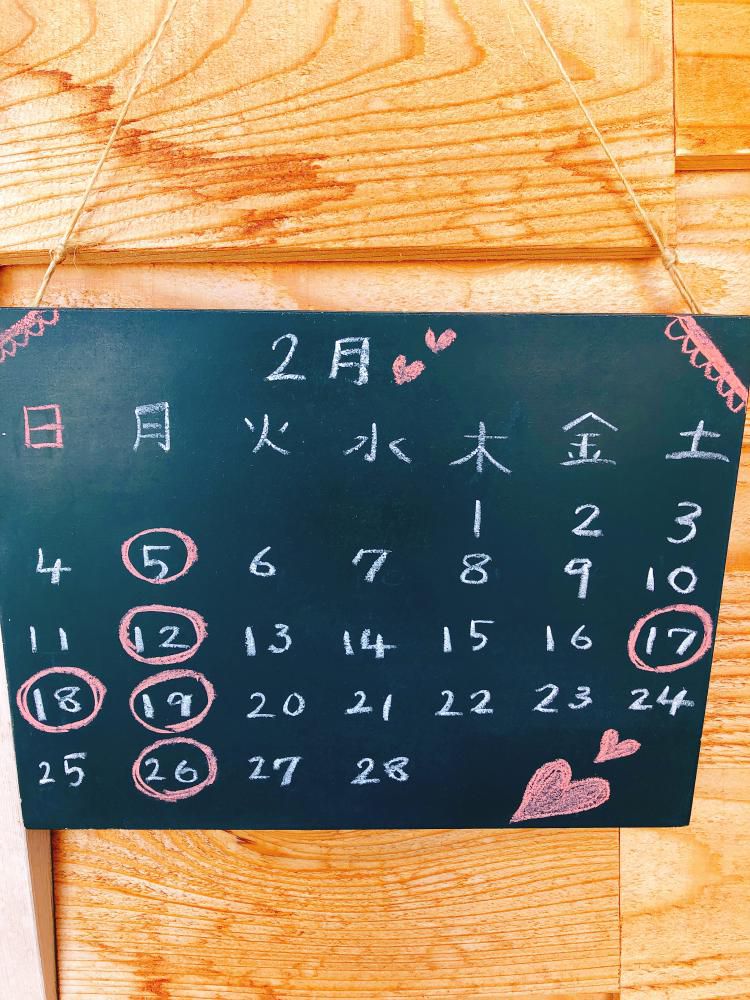 2月
日 月 火 水 木 金 土
1 2 3
4 5 6 7 8 9 10
11 12 13 14 15 16 17
18 19 20 21 22 23 24
25 26 27 28